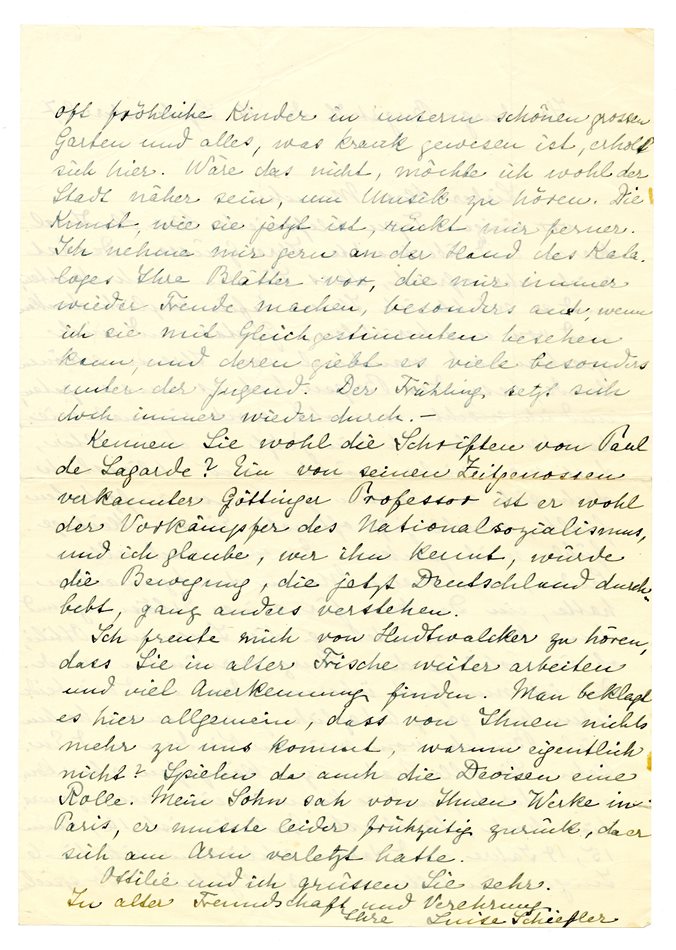 oft fröhliche Kinder in unserm schönen grossen
Garten und alles, was krank gewesen ist, erholt
sich hier. Wäre das nicht, möchte ich wohl der
Stadt näher sein, um Musik zu hören. Die
Kunst, wie sie jetzt ist, rückt mir ferner.
Ich nehme mir gern an der Hand des Kata-
loges Ihre Blätter vor, die mir immer
wieder Freude machen, besonders auch, wenn
ich sie mit Gleichgestimmten besehen
kann, und deren giebt es viele besonders
unter der Jugend. Der Frühling setzt sich
doch immer wieder durch. –
Kennen Sie wohl die Schriften von Paul
de Lagarde? Ein von seinen Zeitgenossen
verkannter Göttinger Professor ist er wohl
der Vorkämpfer des Nationalsozialismus,
und ich glaube, wer ihn kennt, würde
die Bewegung, die jetzt Deutschland durch-
bebt, ganz anders verstehen.
Ich freute mich von Hudtwalcker zu hören,
dass Sie in alter Frische weiter arbeiten
und viel Anerkennung finden. Man beklagt
es hier allgemein, dass von Ihnen nichts
mehr zu uns kommt, warum eigentlich
nicht? Spielen da auch die Devisen eine
Rolle. Mein Sohn sah von Ihnen Werke in
Paris, er musste leider frühzeitig zurück, da er
sich am Arm verletzt hatte.
Ottilie und ich grüssen Sie sehr.
In alter Freundschaft und Verehrung
Ihre Luise Schiefler